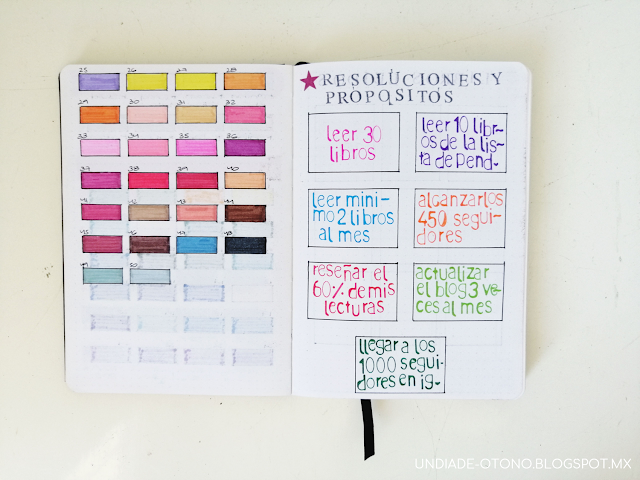 25 26 27 28
29 30 31 32
33 34 35 36
37 38 39 40
41 42 43 44
45 46 49 48
49 50
RESOLUCIONES Y
PROPOSITOS
leer 30
libros
leer 10 libr-
os de la lis-
ta de pend.
leer mini-
mo 2 libros
al mes
alcanzar los
450 segui-
dores
reseñar el
60% de mis
lecturas
actualizar
el blog 3 ve-
ces al mes
llegar a los
1000 segui-
dores en ig.
UNDIADE-OTONO.BLOGSPOT.MX